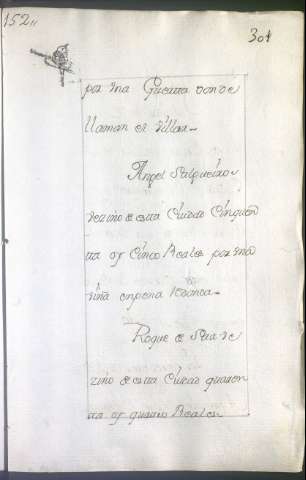 152,,
304
por vna Guerta donde
llaman el Villar
Angel Salgueiro
vezino de esta Ciudad Cinquen
ta y Cinco Reales por vna
viña en
Roque de Silva ve
zino de esta Ciudad quaren
ta y quatro Reales